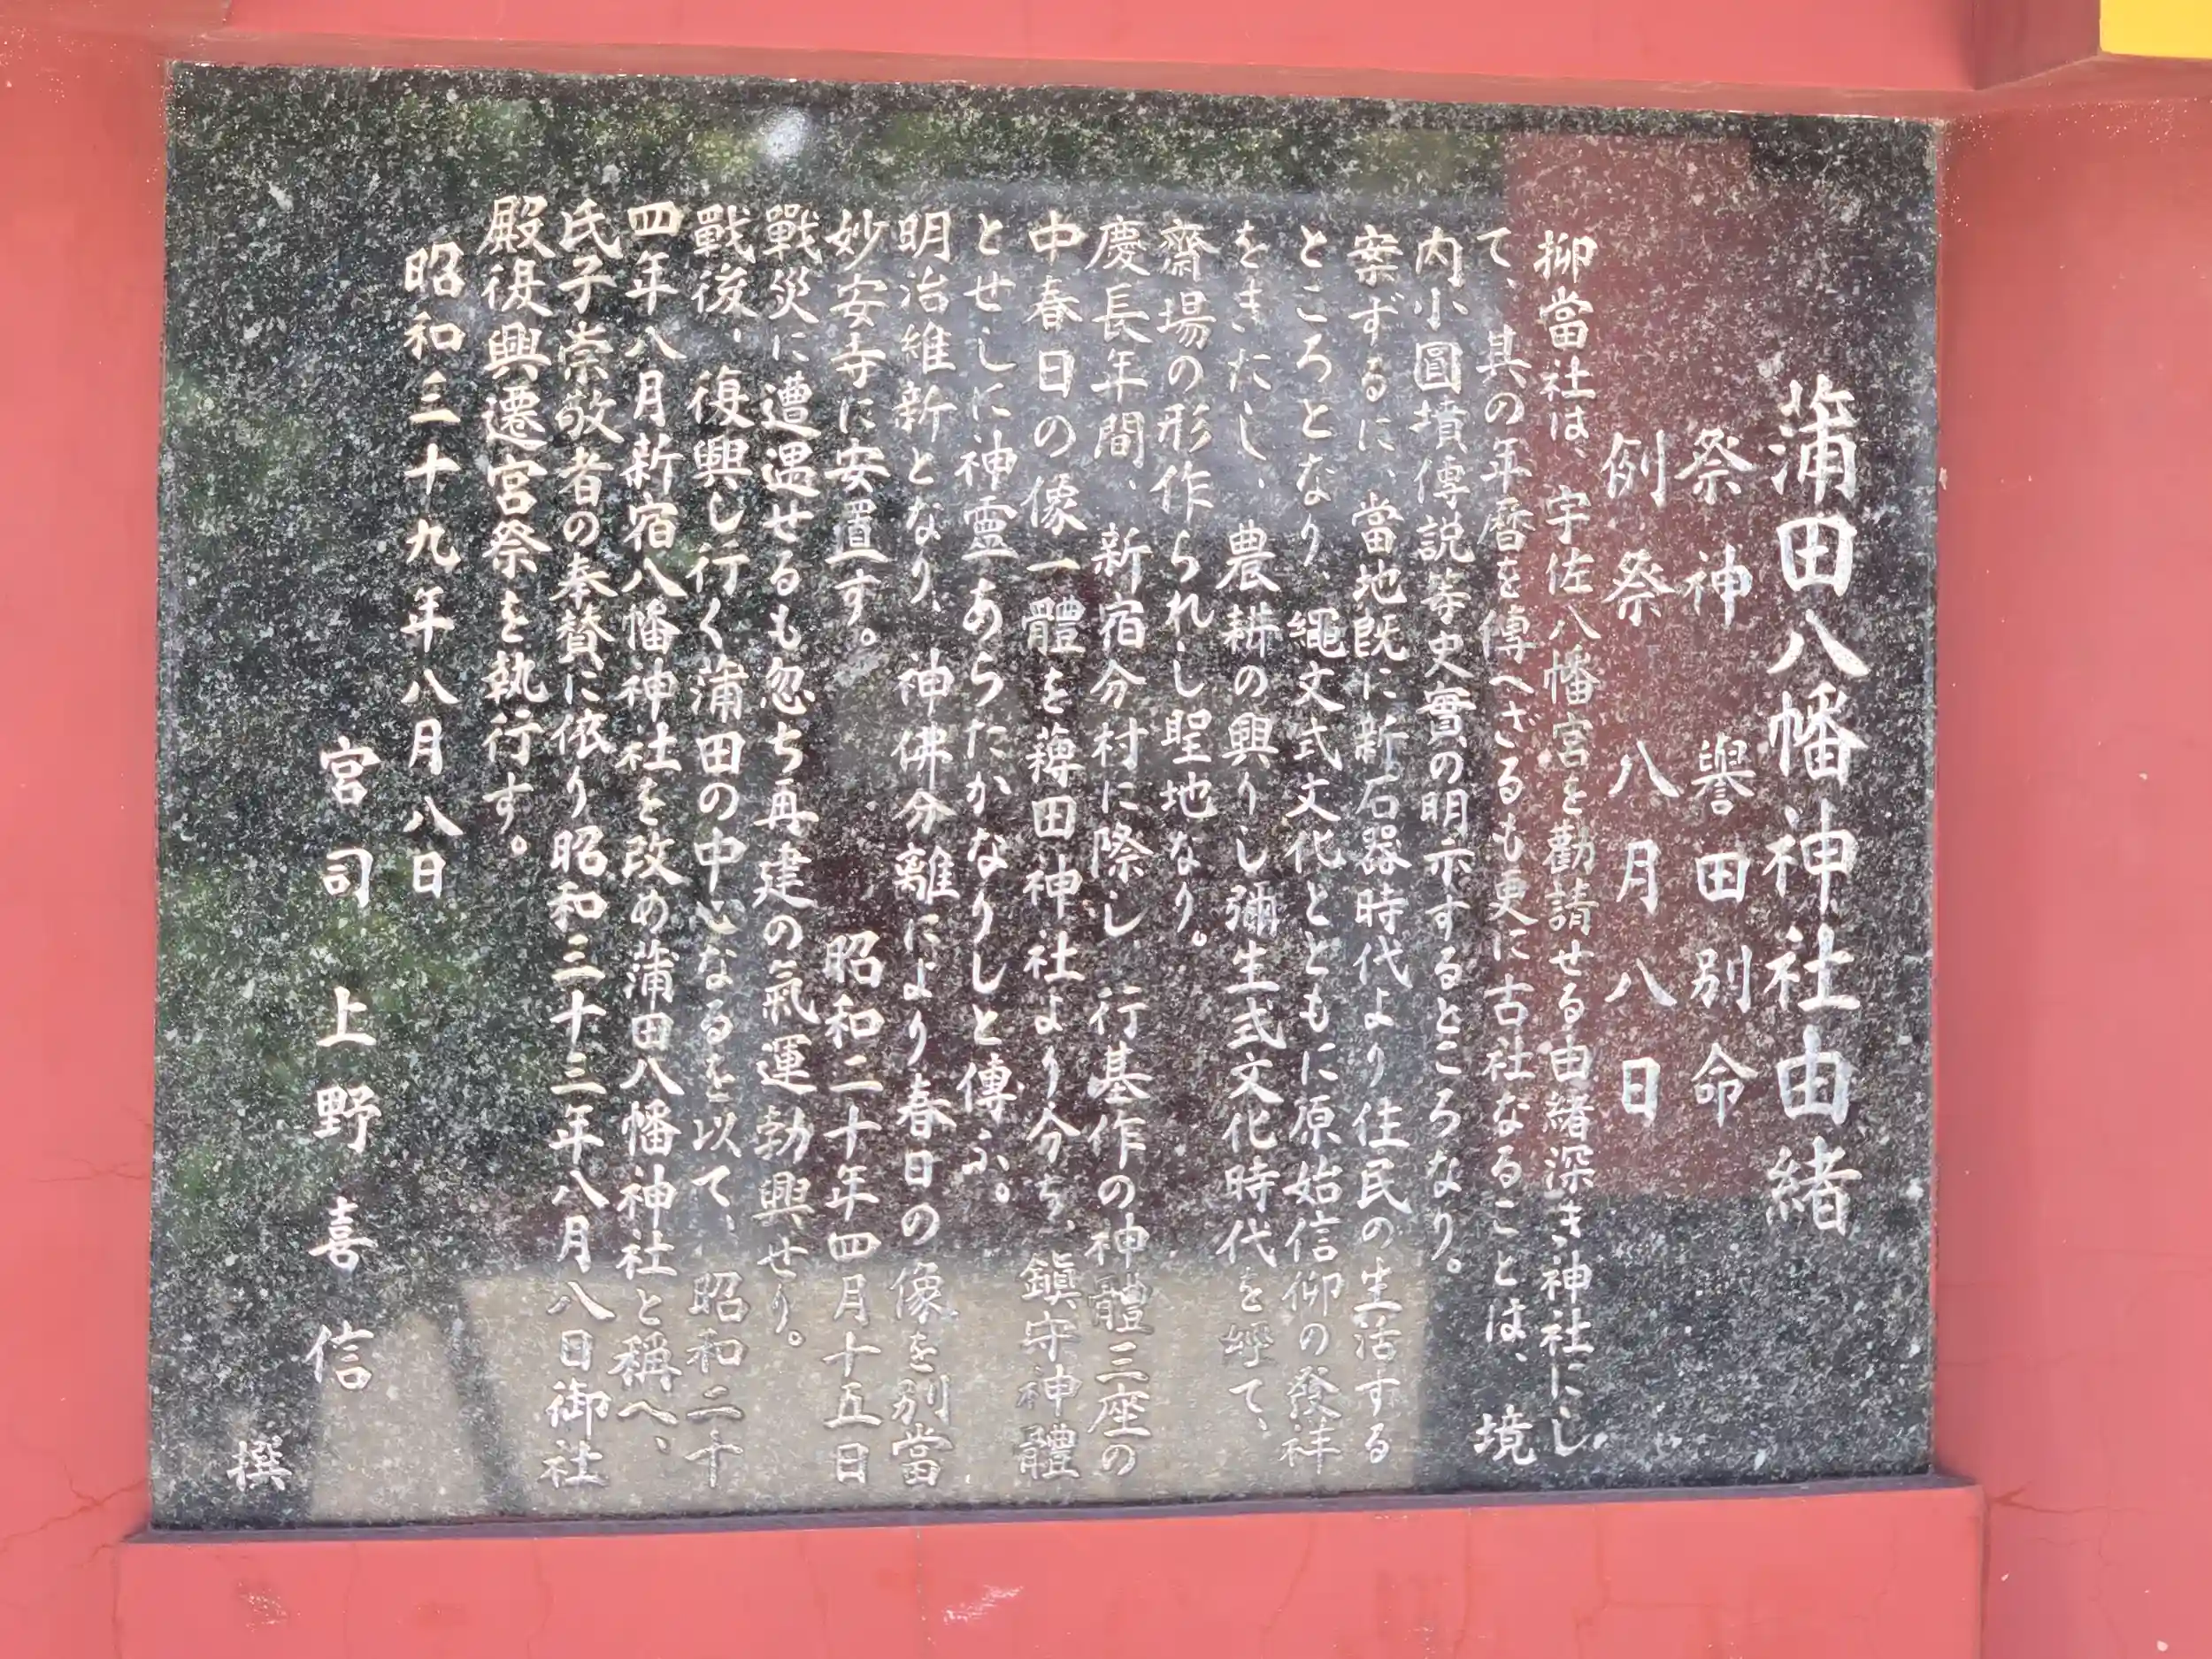 蒲田八幡神社由緒
祭神 譽田別命
例祭 八月八日
抑當社は、宇佐八幡宮を勸請せる由緒深き神社にし
て、其の年暦を傳へざるも更に古社なることは、境
内小圓墳傳説等史實の明示するところなり。
案ずるに、當地既に新石器時代より住民の生活する
ところとなり、繩文式文化とともに原始信仰の發祥
をきたし、農耕の興りし彌生式文化時代を經て、
齋場の形作られし聖地なり。
慶長年間、新宿分村に際し、行基作の神體三座の
中春日の像一體を薭田神社より分ち、鎭守神體
とせしに神霊あらたかなりしと傳ふ。
明治維新となり、神佛分離により春日の像を別當
妙安寺に安置す。 昭和二十年四月十五日
戰災に遭遇せるも忽ち再建の氣運勃興せり。
戰後、復興し行く蒲田の中心なるを以て、昭和二十
四年八月新宿八幡神社を改め蒲田八幡神社と稱へ、
氏子崇敬者の奉賛に依り昭和三十三年八月八日御社
殿復興遷宮祭を執行す。
昭和三十九年八月八日
宮司 上野喜信
撰